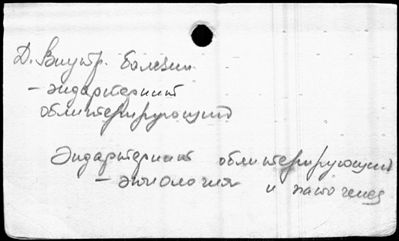 Д. Внутр. болезни
– эндартериит
облитерирующий
Эндартериит облитерирующий
– этиология и патогенез